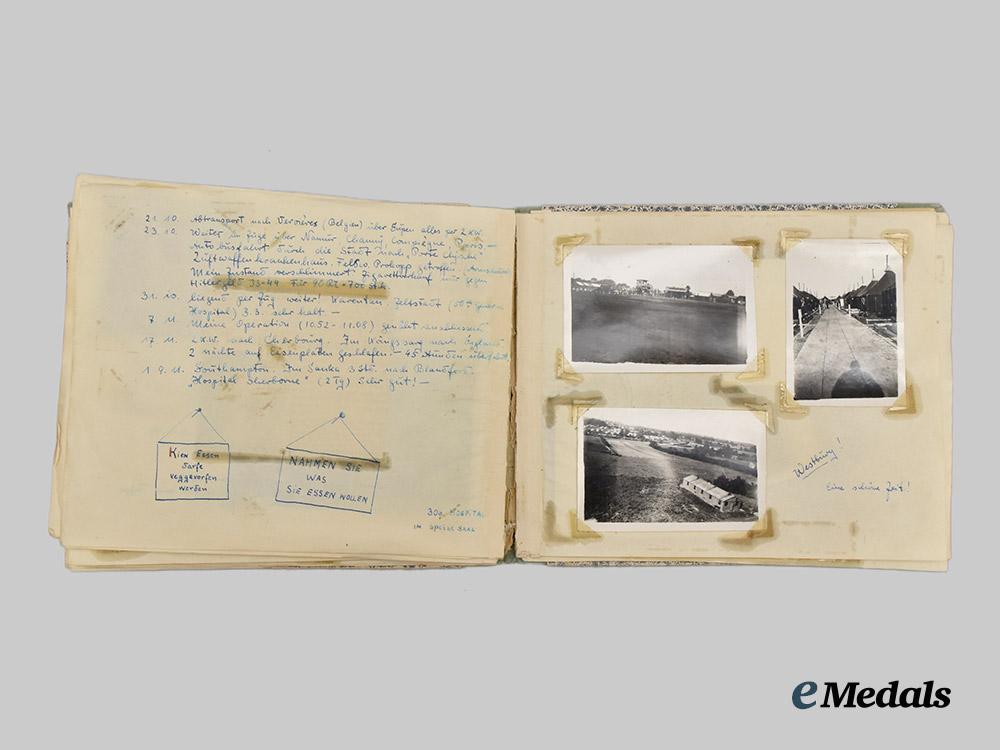 21. 10. Abtransport nach Vervières (Belgien) über Eupen alles per LKW.
23. 10. Weiter im Zuge über Namur Chauny, Compiegne, Paris –
Autobusfahrt durch die Stadt nach
Luftwaffenkrankenhaus. Feldw. Prokopp getroffen.
Mein Zustand verschlimmert Zigarettenverkauf nur gegen
Hitlergeld Für 40 Rt
31. 10. liegend per Zug weiter! Karentan Zeltstadt
Hospital) 3.3. sehr kalt. –
7. 11. Meine Operation (10.52 - 11.08) genäht anschliessend
17. 11. LKW. nach Cherbourg. Im nach England
2 Nächte auf Eisenplatten geschlafen. – 45 Stunden
19. 11. Southhampton. Im Sanka 3 Std. nach Blandford.
"Hospital Sherborne" (2 Tg) Sehr gut! –
Kien Essen
darfe
veggevorfen
werden
NAHMEN SIE
WAS
SIE ESSEN WOLLEN
HOSPITAL
IM SPEISE SAAL
Westbury!
Eine schöne Zeit!
eMedals